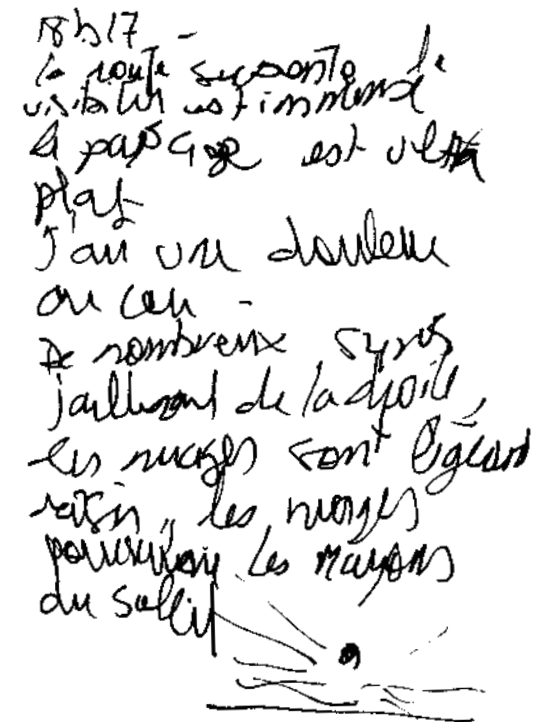 18h17 -
la route serpente la
visibilité est immense
le paysage est ultra
plat
J'ai une douleur
au cou -
De nombreux cyprès
jaillissent de la droite,
les nuages sont
les nuages
poursuivent les rayons
du soleil